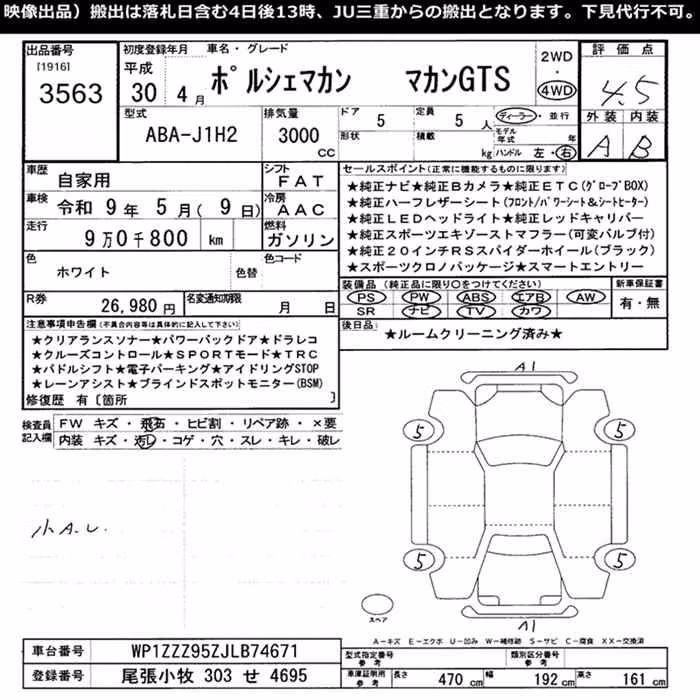 映像出品）搬出は落札日含む4日後13時、JU三重からの搬出となります。下見代行不可。
出品番号 [1916] 3563
初度登録年月 平成 30 4月
車名・グレード ポルシェマカン マカンGTS
2WD ・ 4WD
評価点 4.5
外装 A 内装 B
型式 ABA-J1H2
排気量 3000 CC
ドア 5
形状
定員 5 人
積載 kg
ディーラー・並行
モデル年式 年
ハンドル 左・右
車歴 自家用
シフト FAT
車検 令和 9年 5月 ( 9日)
冷房 AAC
走行 9万0千800 km
燃料 ガソリン
色 ホワイト
色替
色コード
R券 26,980円
名変通知期限 月 日
セールスポイント(正常に機能するものに限ります)
★純正ナビ★純正Bカメラ★純正ETC(グローブBOX)
★純正ハーフレザーシート(フロント/パワーシート&シートヒーター)
★純正LEDヘッドライト★純正レッドキャリパー
★純正スポーツエキゾーストマフラー(可変バルブ付)
★純正20インチRSスパイダーホイール(ブラック)
★スポーツクロノパッケージ★スマートエントリー
装備品 (純正品に限り〇をつけてください)
PS PW ABS エアB AW
SR ナビ TV カワ
新車保証書 有・無
後日品 ★ルームクリーニング済み★
注意事項申告欄(不具合内容等は具体的に記入して下さい)
★クリアランスソナー★パワーバックドア★ドラレコ
★クルーズコントロール★SPORTモード★TRC
★パドルシフト★電子パーキング★アイドリングSTOP
★レーンアシスト★ブラインドスポットモニター(BSM)
修復歴 有〔箇所 〕
検査員記入欄
FW キズ・飛石・ヒビ割・リペア跡・×要
内装 キズ・汚レ・コゲ・穴・スレ・キレ・破レ
小A.U.
A1
5 5
5 5
スペア
A1
A−キズ E−エクボ U−凹み W−補修跡 S−サビ C−腐食 XX−交換済
車台番号 WP1ZZZ95ZJLB74671
登録番号 尾張小牧 303 せ 4695
型式指定番号 参考
類別区分番号 参考
車庫証明用 参考 長さ 470 cm 幅 192 cm 高さ 161 cm